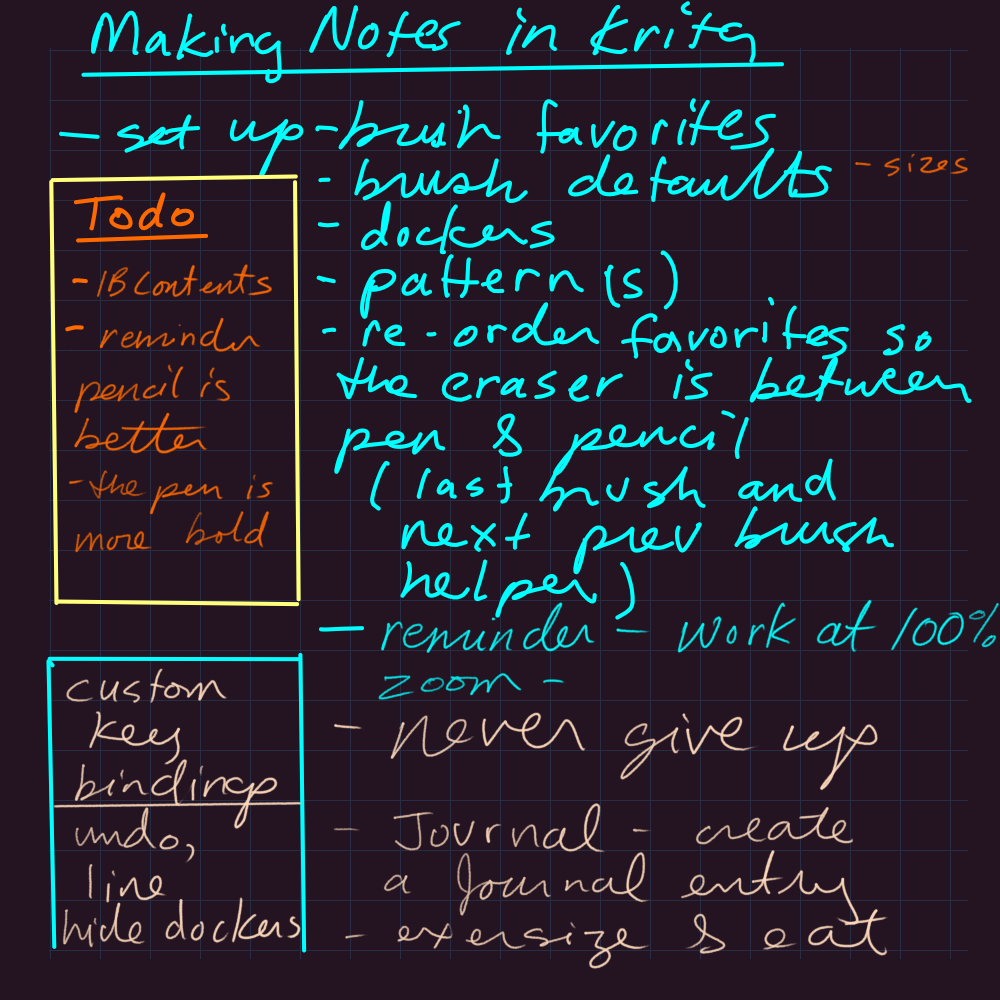 Making Notes in Krita
- set up - brush favorites
- brush defaults - sizes
- dockers
- pattern(s)
- re-order favorites so
the eraser is between
pen & pencil
(last brush and
next prev brush
helper)
- reminder - work at 100%
zoom -
- never give up
- Journal - create
a Journal entry
- exersize & eat
Todo
- IB Contents
- reminder
pencil is
better
- the pen is
more bold
custom
key
bindings
undo,
line
hide dockers